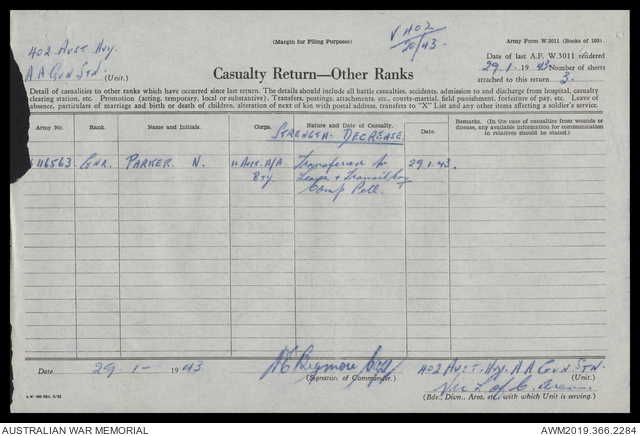 402 AUST. HVY.
A A GUN STN.
(Unit.)
(Margin for Filing Purposes)
V 402
30/43.
Army Form W.3011 (Books of 100).
Date of last A.F. W.3011 rendered
29.1. 1943. Number of sheets
attached to this return 3.
Casualty Return—Other Ranks
Detail of casualties to other ranks which have occurred since last return. The details should include all battle casualties, accidents, admission to and discharge from hospital, casualty
clearing station, etc. Promotion (acting, temporary, local or substantive). Transfers, postings, attachments, etc., courts-martial, field punishment, forfeiture of pay, etc. Leave of
absence, particulars of marriage and birth or death of children, alteration of next of kin with postal address, transfers to "X" List and any other items affecting a soldier's service.
Army No.
Rank.
Name and Initials.
Corps.
Nature and Date of Casualty.
STRENGTH - DECREASE.
Date.
Remarks. (In the case of casualties from wounds or
disease, any available information for communication
to relatives should be stated.)
116563. GNR. PARKER. N. AUST. A/A Transferred to 29.1.43.
Bty. Leave & Transit Coy
Camp Pell.
Date 29 - 1 - 1943.
(Signature of Commander.)
402 AUST. HVY. A A GUN STN.
(Unit.)
(Bde., Divn., Area, etc., with which Unit is serving.)
AUSTRALIAN WAR MEMORIAL
AWM2019.366.2284